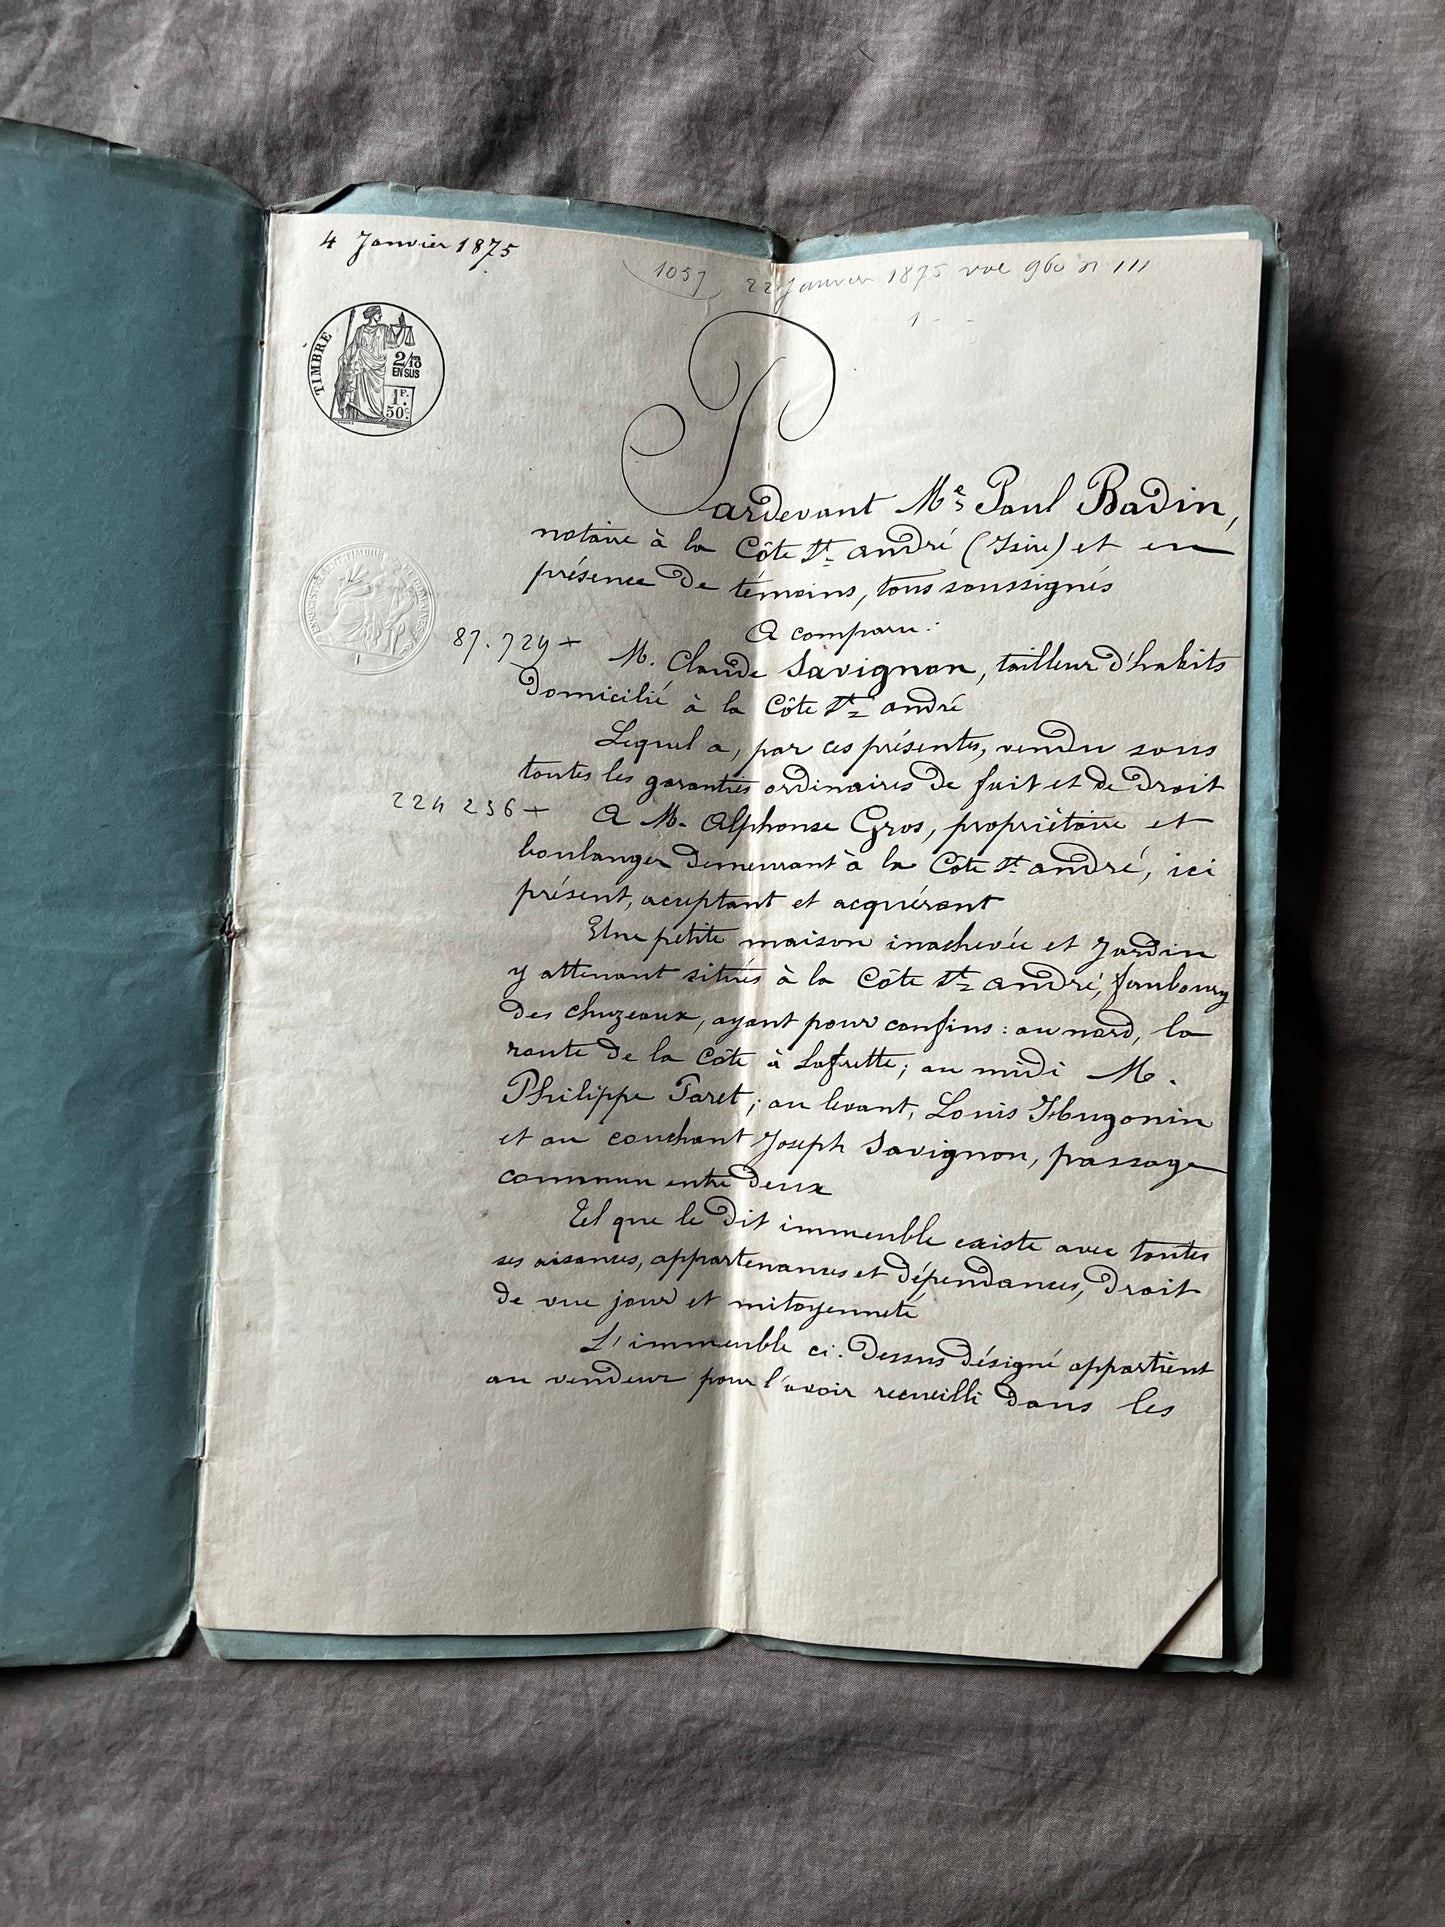 4 Janvier 1875
1057 22 Janvier 1875 vol 960 n 111
TIMBRE
2/10
EN SUS
1F.
50c.
Pardevant Me Paul Badin,
notaire à la Côte St André (Isère) et en
présence de témoins, tous soussignés
A comparu :
87.729 +
M. Claude Savignon, tailleur d'habits
domicilié à la Côte St André
Lequel a, par ces présentes, vendu sous
toutes les garanties ordinaires de fait et de droit
224 256 +
A M. Alphonse Gros, propriétaire et
boulanger demeurant à la Côte St André, ici
présent, acceptant et acquérant
Une petite maison inachevée et Jardin
y attenant situés à la Côte St André, faubourg
des Chuzeaux, ayant pour confins : au nord, la
route de la Côte à Lafrette ; au midi M.
Philippe Paret ; au levant, Louis Hugonin
et au couchant Joseph Savignon, passage
commun entre deux
Tel que le dit immeuble existe avec toutes
ses aisances, appartenances et dépendances, droit
de vue jour et mitoyenneté
L'immeuble ci-dessus désigné appartient
au vendeur pour l'avoir recueilli dans les